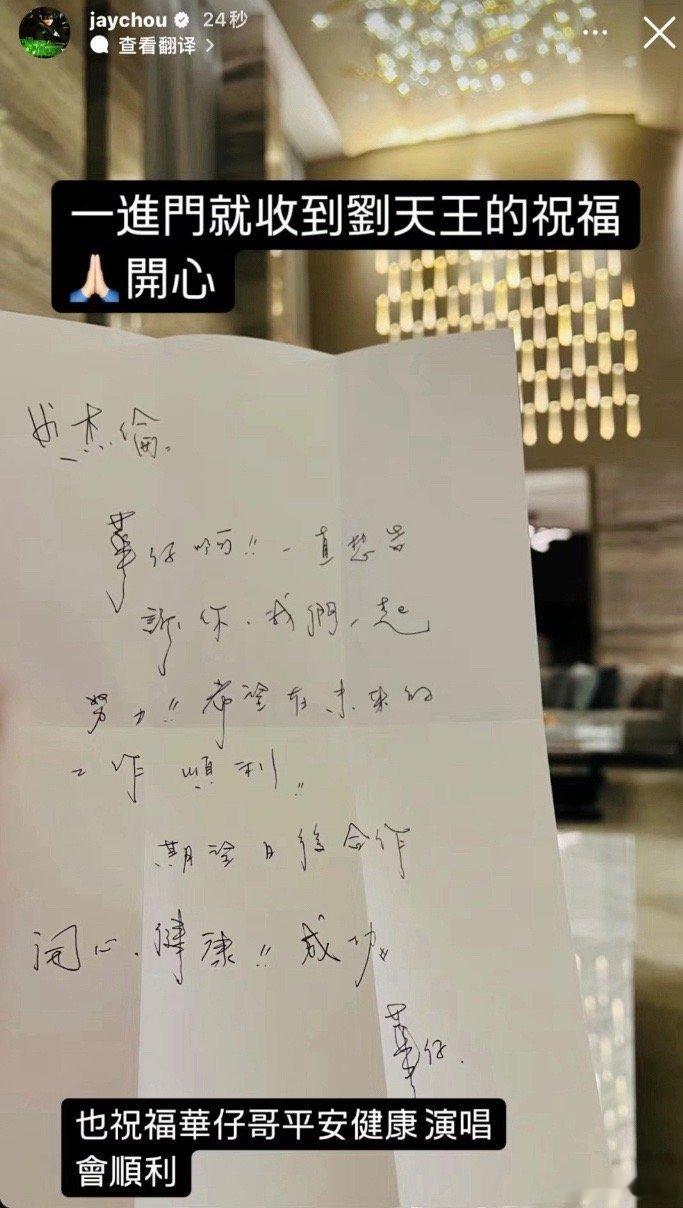 jaychou 24秒
查看翻译
一進門就收到劉天王的祝福
🙏🏻開心
杰倫。
華仔啊!! 一直想告
訴你、我們一起
努力!! 希望在未來的
工作順利!!
期望日後合作
開心、健康!! 成功。
華仔.
也祝福華仔哥平安健康 演唱
會順利